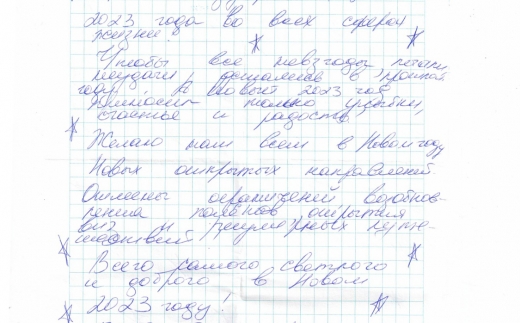 2023 года во всех сферах
жизни!
Чтобы все невзгоды, печали,
неудачи остались в прошлом
году! А Новый 2023 год
приносит только улыбки,
счастье и радость
Желаю нам всем в Новом году
Новых открытых направлений
Отмены ограничений возобнов-
ления полётов открытия
виз и регулярных путе-
шествий
Всего самого светлого
и доброго в Новом
2023 году!